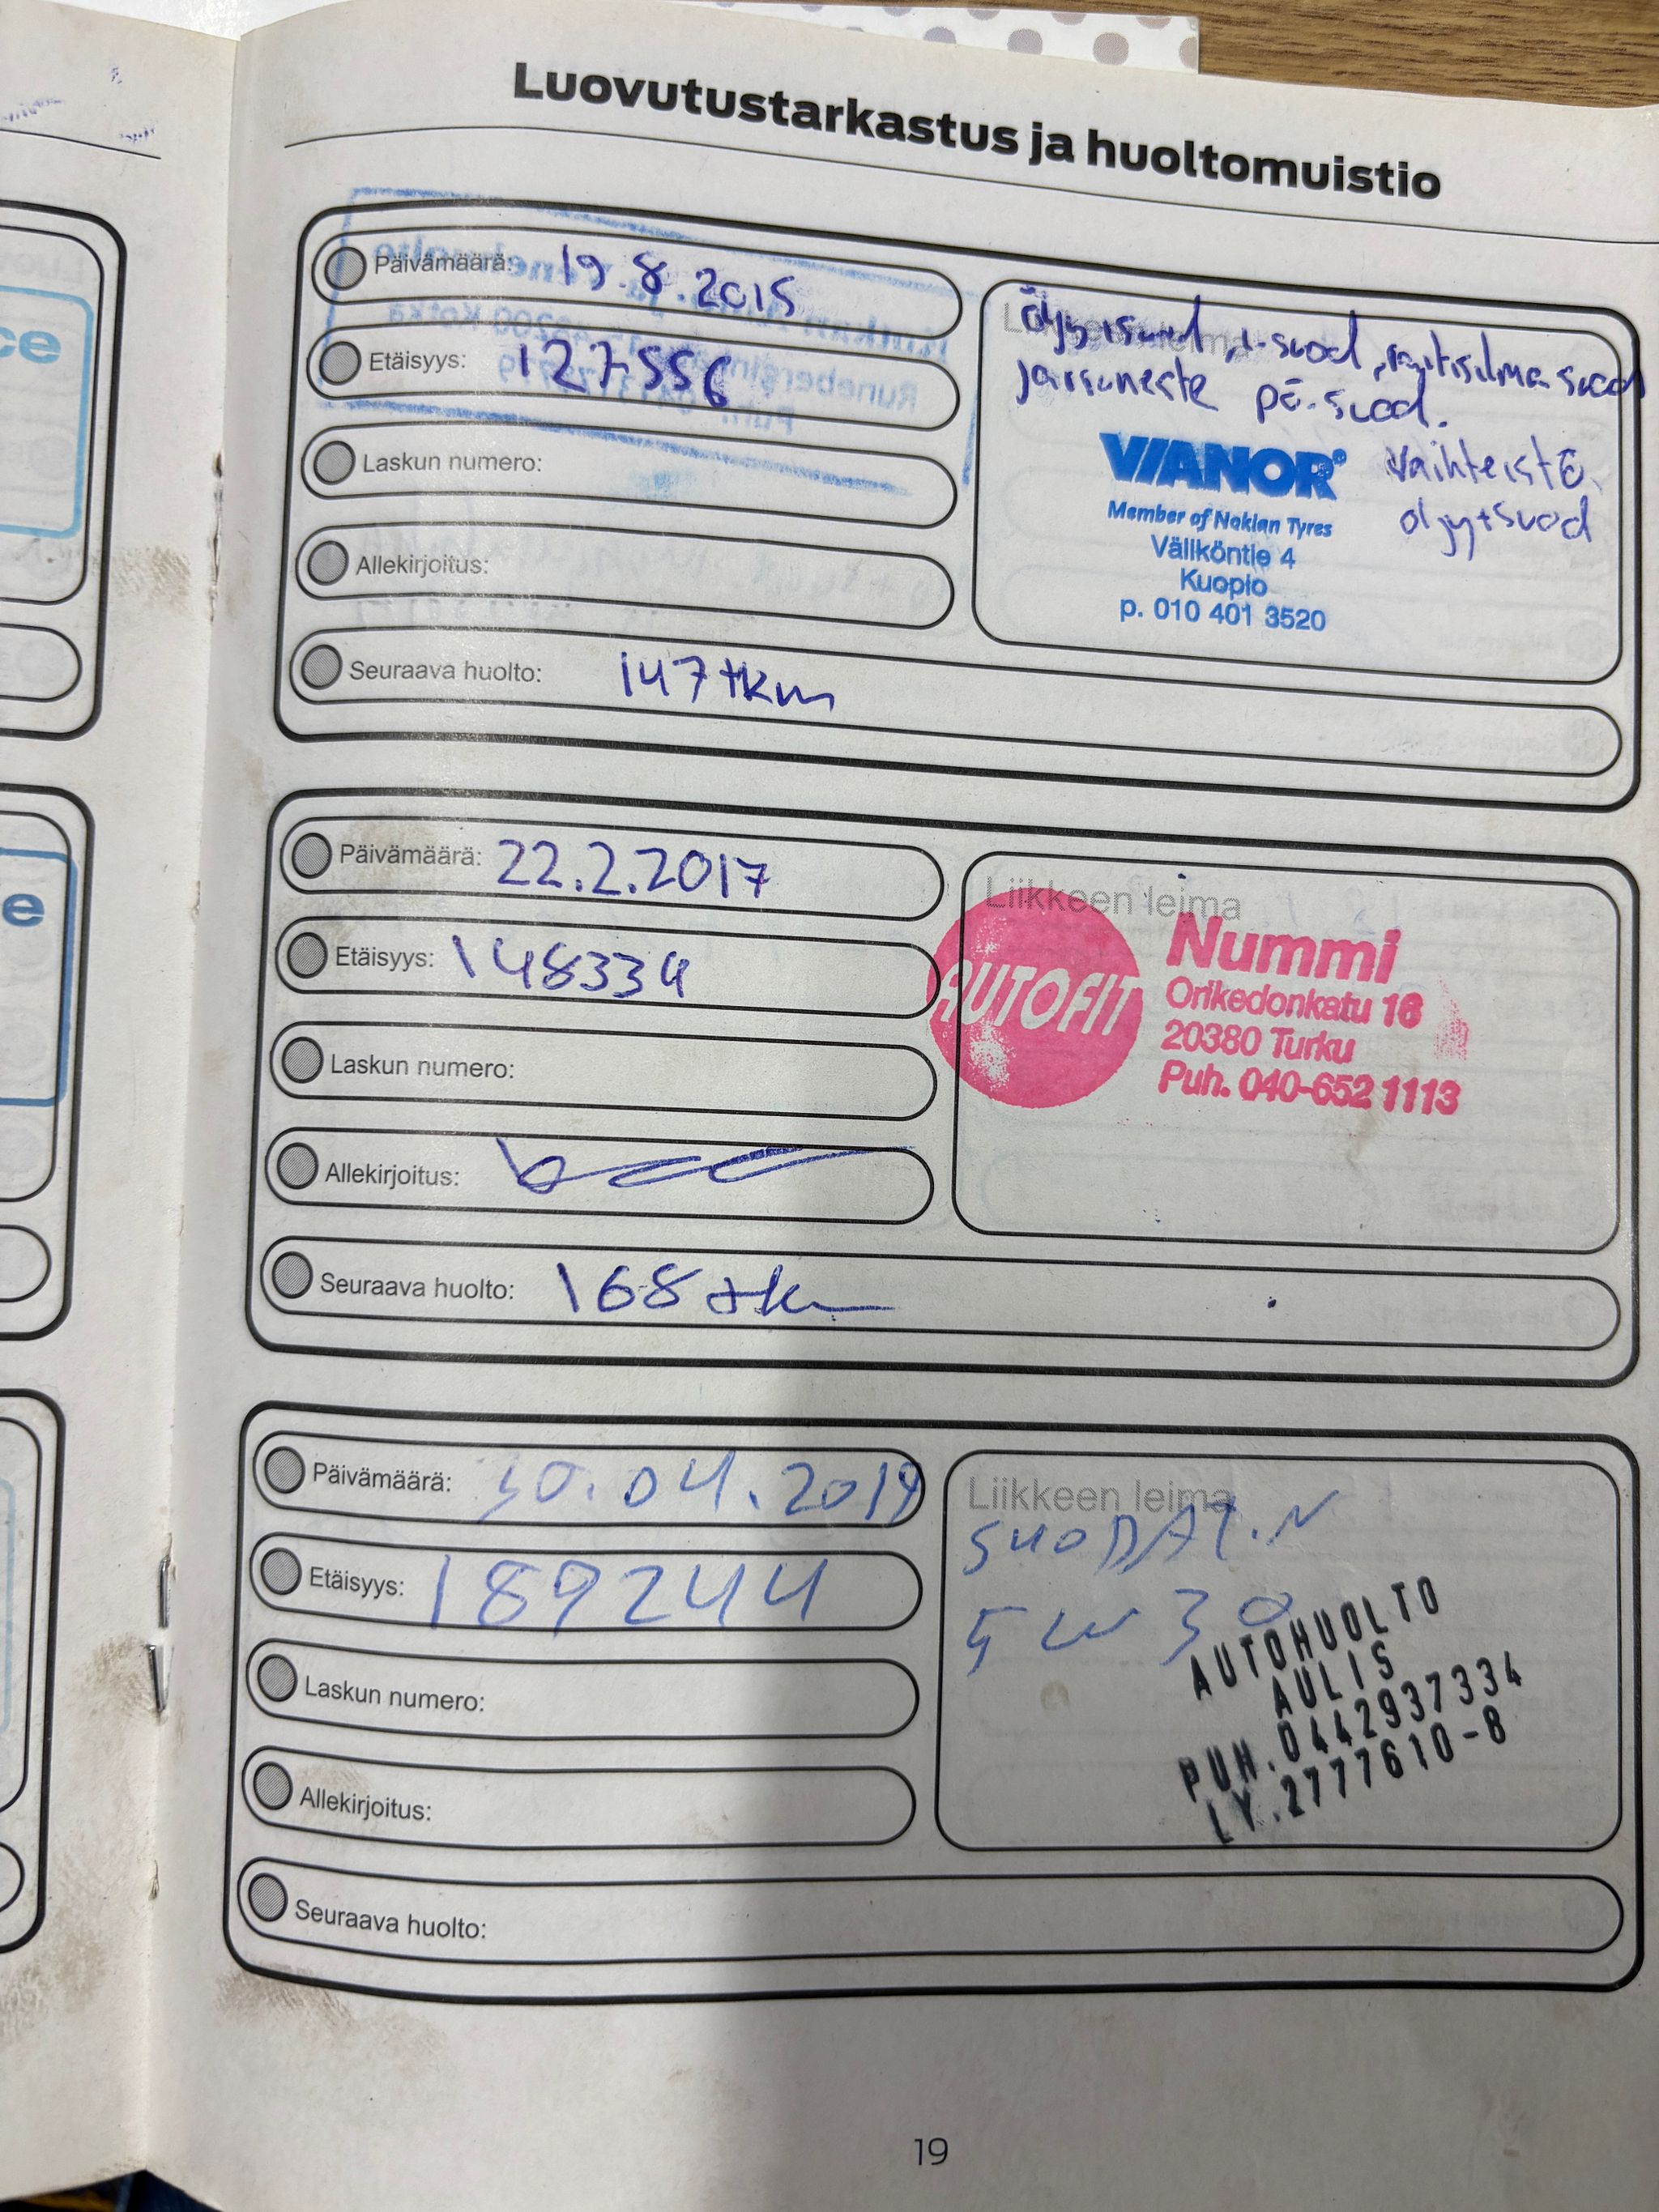 Luovutustarkastus ja huoltomuistio
Päivämäärä: 19.8.2015
Etäisyys: 127556
Laskun numero:
Allekirjoitus:
Seuraava huolto: 147 tkm
öljy+suod, i-suod, raitisilma suod
jarruneste pö.suod.
vaihteistö
öljy+suod
VIANOR
Member of Nokian Tyres
Väliköntie 4
Kuopio
p. 010 401 3520
Päivämäärä: 22.2.2017
Etäisyys: 148334
Laskun numero:
Allekirjoitus:
Seuraava huolto: 168 tkm
Liikkeen leima
AUTOFIT
Nummi
Orikedonkatu 16
20380 Turku
Puh. 040-652 1113
Päivämäärä: 30.04.2019
Etäisyys: 189244
Laskun numero:
Allekirjoitus:
Seuraava huolto:
Liikkeen leima
SUODAT.N
5W30
AUTOHUOLTO
AULIS
PUH.0442937334
LY.2777610-8
19
ce
e